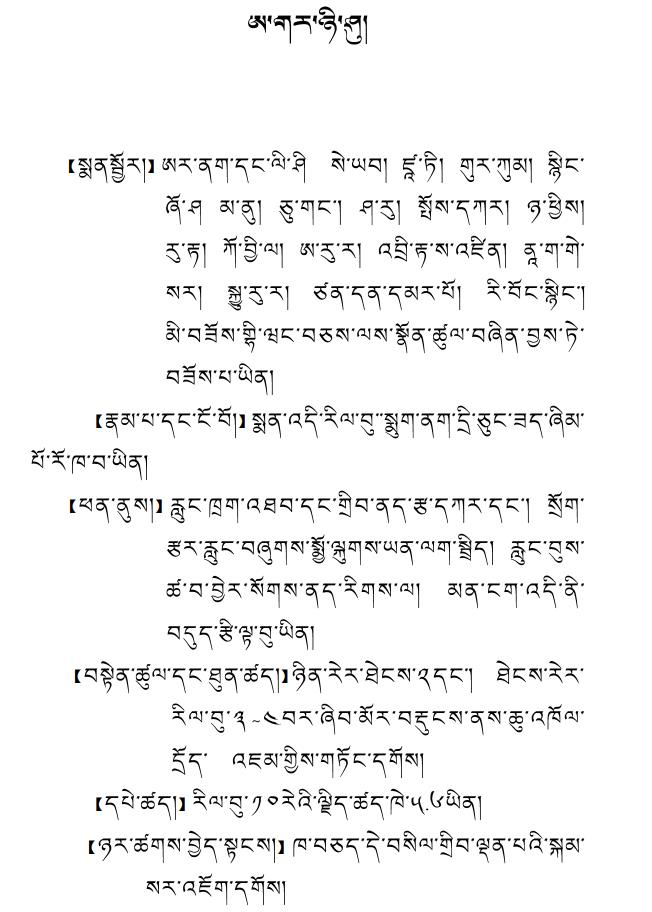 ཨ་གར་ཉི་ཤུ།
【སྨན་སྦྱོར།】ཨར་ནག་དང་ལི་ཤི སེ་ཡབ། ཛཱ་ཏི། གུར་ཀུམ། སྙིང་
ཞོ་ཤ མ་ནུ། ཅུ་གང་། ཤ་རུ། སྤོས་དཀར། ཉ་ཕྱིས།
རུ་རྟ། ཀོ་བྱི་ལ། ཨ་རུ་ར། འབྲི་རྟ་ས་འཛིན། ནཱ་ག་གེ་
སར། སྐྱུ་རུ་ར། ཙན་དན་དམར་པོ། རི་བོང་སྙིང་།
མི་བཟོས་གྷི་ཝང་བཅས་ལས་སྣོན་ཚུལ་བཞིན་བྱས་ཏེ་
བཟོས་པ་ཡིན།
【རྣམ་པ་དང་ངོ་བོ།】སྨན་འདི་རིལ་བུ་སྨུག་ནག་དྲི་ཅུང་ཟད་ཞིམ་
པོ་རོ་ཁ་བ་ཡིན།
【ཕན་ནུས།】རླུང་ཁྲག་འཐབ་དང་གྲིབ་ནད་རྩ་དཀར་དང་། སྲོག་
རྩར་རླུང་བཞུགས་སྨྱོ་ལྐུགས་ཡན་ལག་སྦྲིད། རླུང་བུས་
ཚ་བ་བྱེར་སོགས་ནད་རིགས་ལ། མན་ངག་འདི་ནི་
བདུད་རྩི་ལྟ་བུ་ཡིན།
【བསྟེན་ཚུལ་དང་ཐུན་ཚད།】ཉིན་རེར་ཐེངས་༢དང་། ཐེངས་རེར་
རིལ་བུ་༣~༤བར་ཞིབ་མོར་བརྡུངས་ནས་ཆུ་འཁོལ་
དྲོད་ འཇམ་གྱིས་གཏོང་དགོས།
【དཔེ་ཚད།】རིལ་བུ་༡༠རེའི་ལྗིད་ཚད་ཁེ་༥.༦ཡིན།
【ཉར་ཚགས་བྱེད་སྟངས།】ཁ་བཅད་དེ་བསིལ་གྲིབ་ལྡན་པའི་སྐམ་
སར་འཇོག་དགོས།